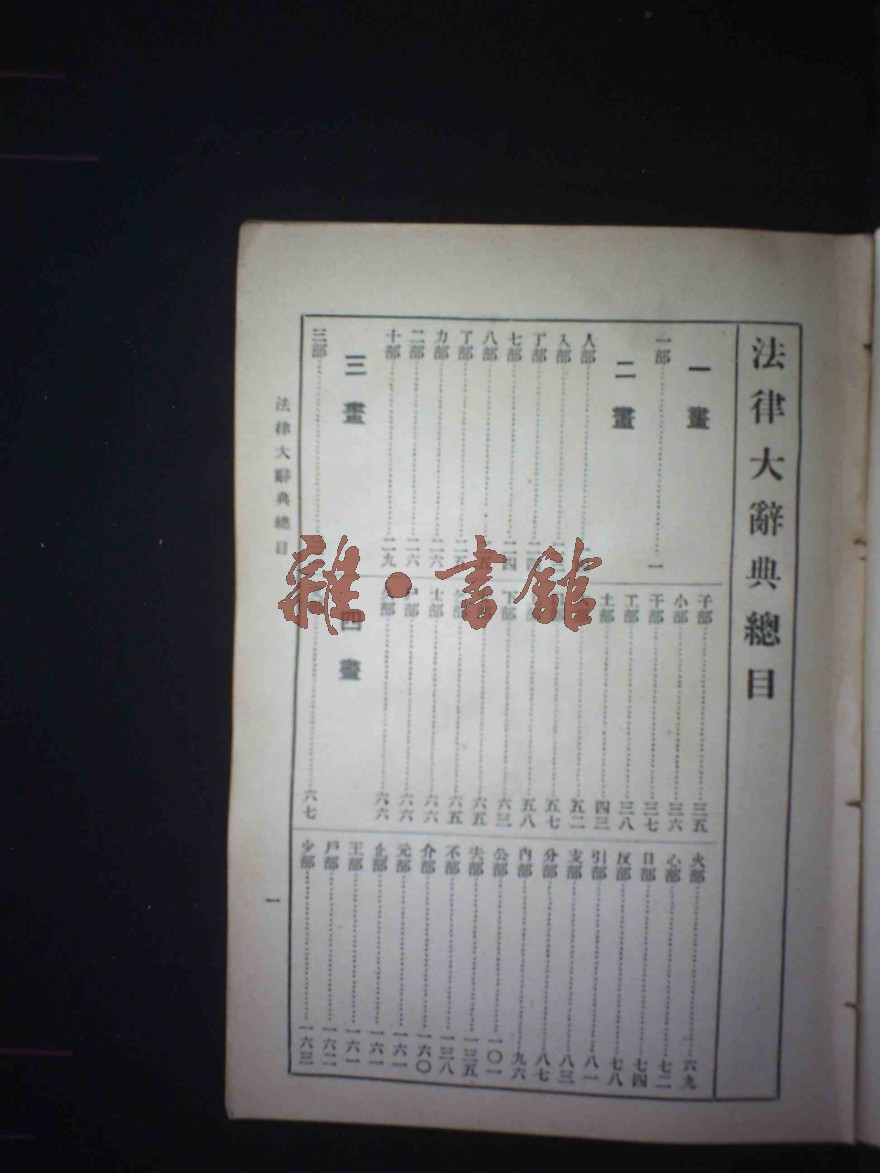 法律大辭典總目
一畫
一部 一
二畫
人部
入部
丁部
七部 二四
八部 二五
了部 二五
力部 二六
二部 二六
十部 二九
三畫
三部
子部 三五
小部 三六
干部 三七
工部 三八
土部 四三
五二
五七
五八
下部 六三
六五
六五
士部 六六
尸部 六六
部 六六
四畫
六七
火部 六九
心部 七二
日部 七四
反部 七八
引部 八一
支部 八三
分部 八七
內部 九六
公部 一〇一
夫部 一三五
不部 一三八
介部 一六〇
元部 一六一
止部 一六一
王部 一六一
戶部 一六二
少部 一六三
法律大辭典總目
一
雜·書館